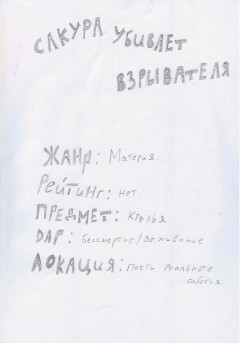 САКУРА УБИВАЕТ
ВЗРЫВАТЕЛЯ
ЖАНР: Материя
РЕЙТИНГ: нет
ПРЕДМЕТ: Крылья
DАР: Бессмертие/Оживание
ЛОКАЦИЯ: Почти реальные
события